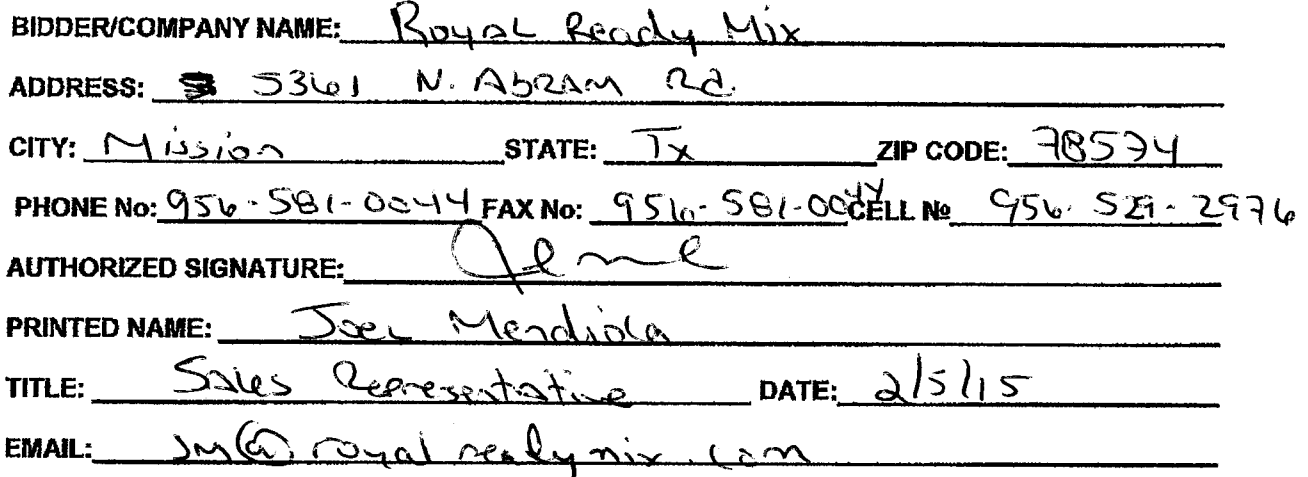 BIDDER/COMPANY NAME: Royal Ready Mix
ADDRESS: 5361 N. Abram Rd.
CITY: Mission STATE: Tx ZIP CODE: 78574
PHONE No: 956-581-0044 FAX No: 956-581-0044 CELL No 956-529-2976
AUTHORIZED SIGNATURE:
PRINTED NAME: Joel Mendiola
TITLE: Sales Representative DATE: 2/5/15
EMAIL: JM@royalreadymix.com